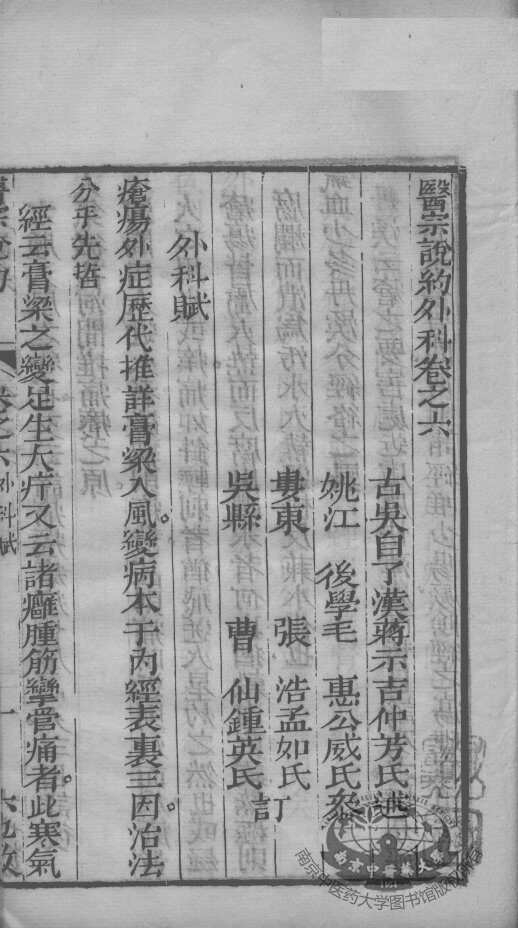 醫宗說約外科卷之六
古吳自了漢蔣示吉仲芳氏述
姚江 後學毛 惠公威氏叅
婁東 張 浩孟如氏
吳縣 曹 仙鍾英氏 訂
外科賦
瘡瘍外症歷代推詳膏粱入風變病本于內經表裏三因治法
分乎先哲
經云膏粱之變足生大疔又云諸癰腫筋攣骨痛者此寒氣
醫宗說約 卷之六 外科賦 一
南京中医药大学图书馆版权所有